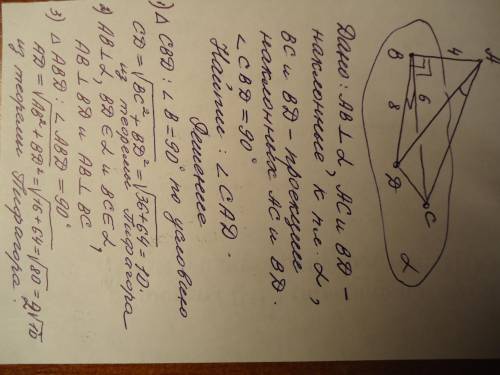 A
4
B
6
8
D
C
α
Дано: AB⊥α, AC и BD –
наклонные, к пл. α,
BC и BD – проекции
наклонных AC и BD.
∠CBD = 90°
Найти: ∠CAD.
Решение
1) Δ CBD: ∠B = 90° по условию
CD = √BC² + BD² = √36+64 = 10.
из теоремы Пифагора
2) AB⊥α, BD∈α и BC∈α,
AB⊥BD и AB⊥BC
3) Δ ABD: ∠ABD = 90°
AD = √AB² + BD² = √16+64 = √80 = 2√10
из теоремы Пифагора.